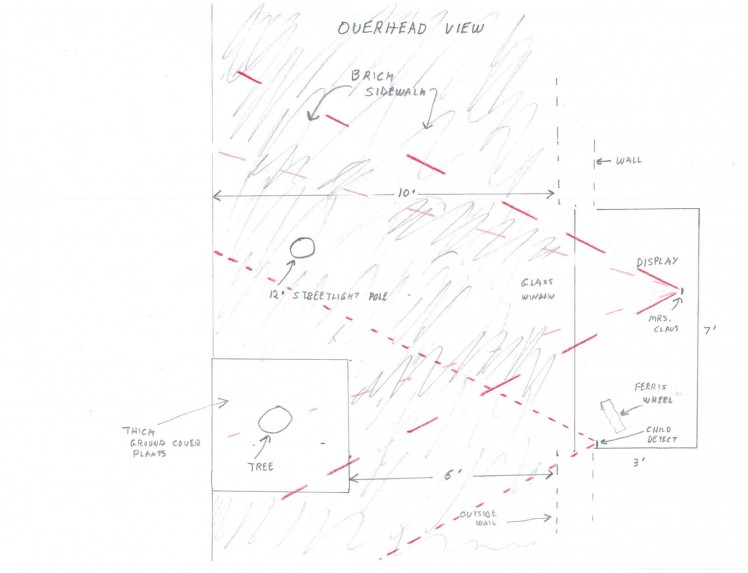 OVERHEAD VIEW
BRICK
SIDEWALK
WALL
10'
DISPLAY
12' STREETLIGHT POLE
GLASS
WINDOW
MRS.
CLAUS
7'
FERRIS
WHEEL
THICK
GROUND COVER
PLANTS
CHILD
DETECT
TREE
3'
6'
OUTSIDE
WALL